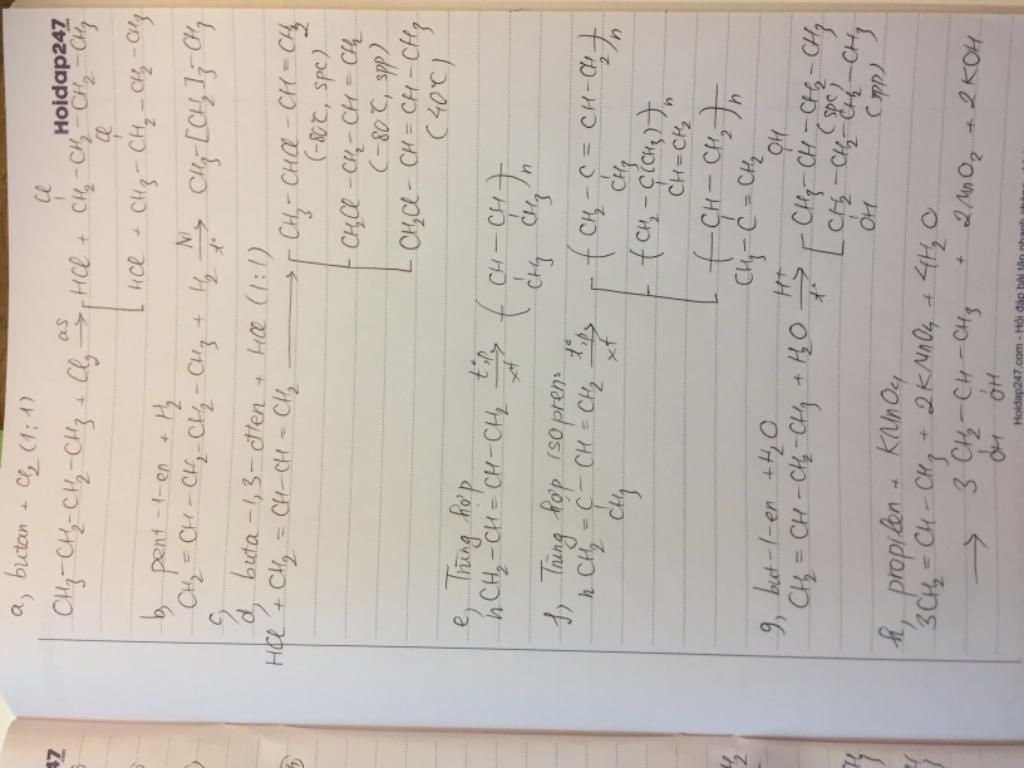 Hoidap247
a, butan + Cl2 (1:1)
CH3-CH2-CH2-CH3 + Cl2 —as→ HCl + CH2-CH2-CH2-CH3
Cl
HCl + CH3-CH-CH2-CH3
Cl
b, pent-1-en + H2
CH2=CH-CH2-CH2-CH3 + H2 —Ni, t°→ CH3-[CH2]3-CH3
c,
d, buta-1,3-đien + HCl (1:1)
HCl + CH2=CH-CH=CH2 → CH3-CHCl-CH=CH2
(-80°C, spc)
CH2Cl-CH2-CH=CH2
(-80°C, spp)
CH2Cl-CH=CH-CH3
(40°C)
e, Trùng hợp
nCH3-CH=CH-CH3 —t°, p, xt→ (CH-CH)n
CH3 CH3
f, Trùng hợp isopren:
nCH2=C-CH=CH2 —t°, p, xt→ (CH2-C=CH-CH2)n
CH3 CH3
(CH2-C(CH3))n
CH=CH2
(CH-CH2)n
CH3-C=CH2
g, but-1-en + H2O
OH
CH2=CH-CH2-CH3 + H2O —H+, t°→ CH3-CH-CH2-CH3
(spc)
CH2-CH2-CH2-CH3
OH (spp)
h, propilen + KMnO4
3CH2=CH-CH3 + 2KMnO4 + 4H2O
→ 3CH2-CH-CH3 + 2MnO2 + 2KOH
OH OH
Hoidap247.com - Hỏi đáp bài tập nhanh
47